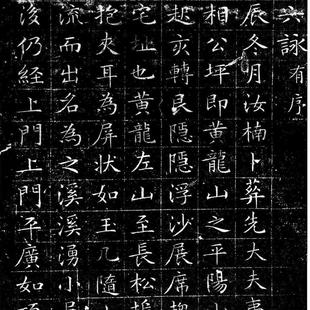 詠有序
辰冬月汝楠卜葬先大夫
相公坪即黃龍山之平陽
趂亥轉艮隱隱浮沙展席
宅址也黃龍左山至長松
抱夾耳為屏狀如玉几隨
流而出名為之溪溪湧小
後仍経上門上門平廣如